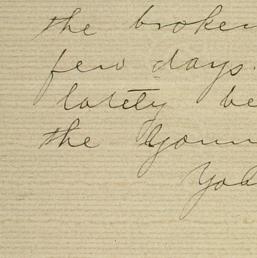 the broken
few days.
lately be
the